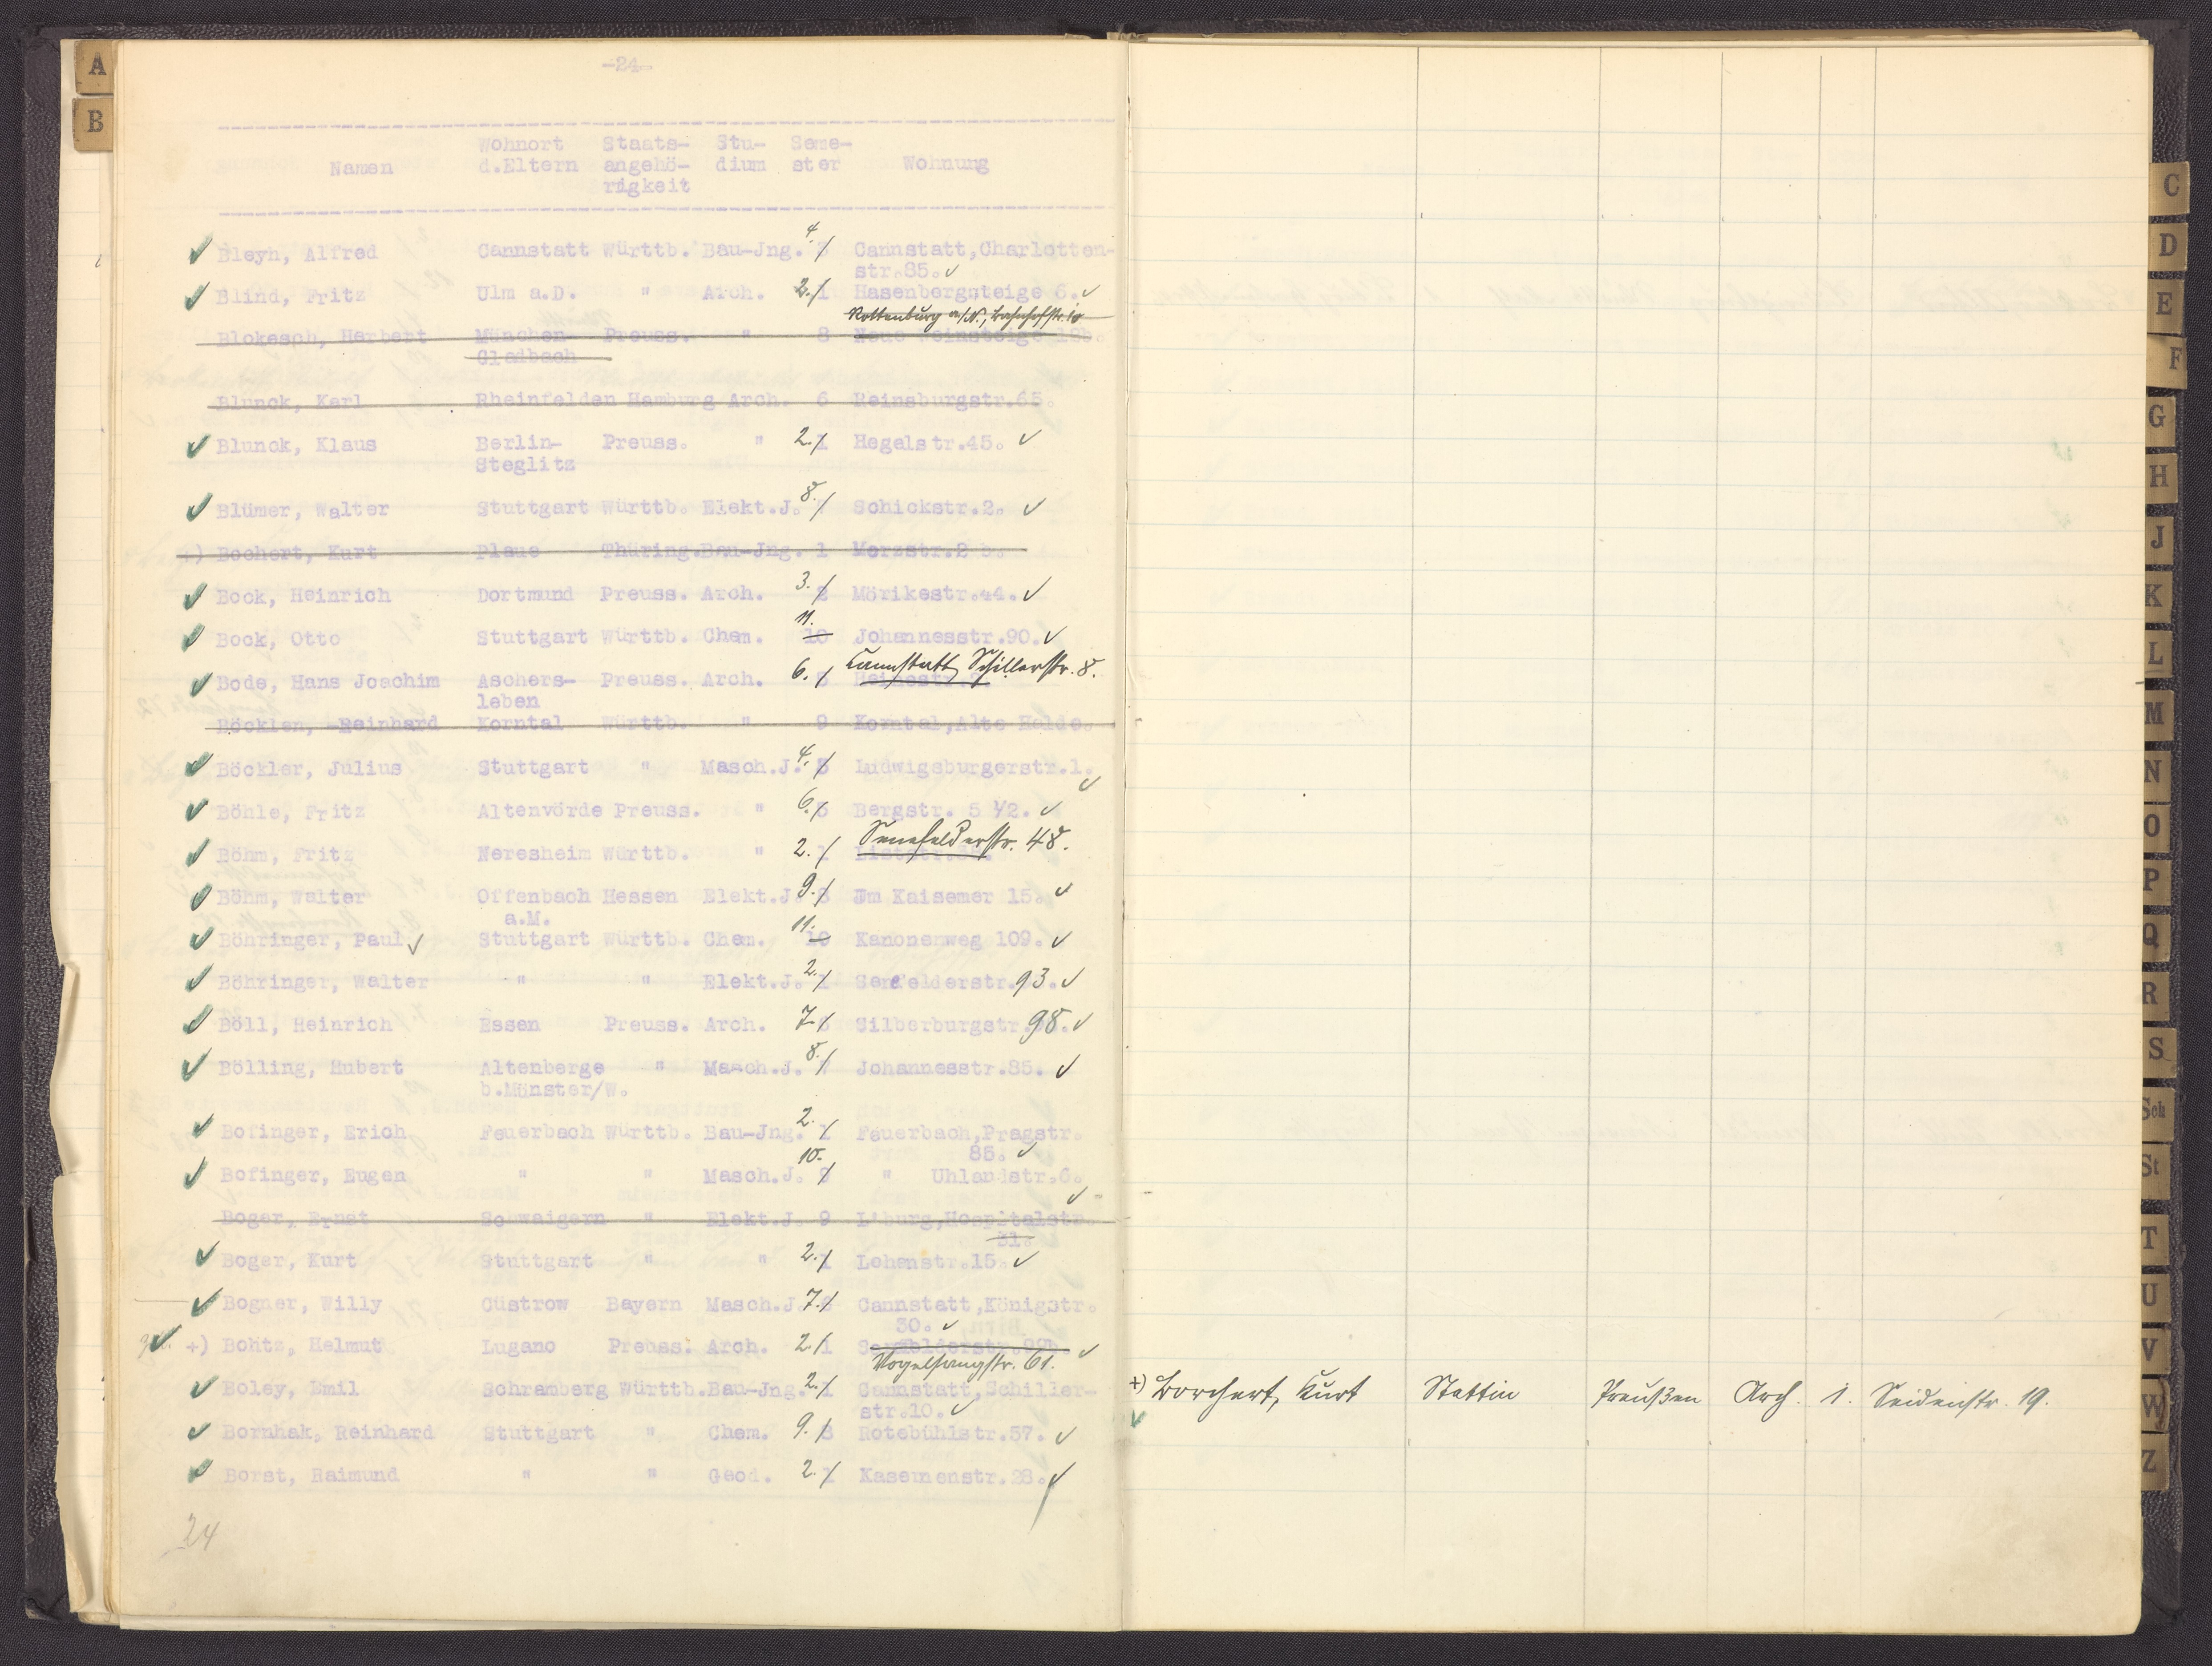 -24-
Namen Wohnort d.Eltern Staats-angehö-rigkeit Stu-dium Seme-ster Wohnung
Bleyh, Alfred Cannstatt Württb. Bau-Jng. 4. Cannstatt,Charlotten-
str.85.
Blind, Fritz Ulm a.D. " Arch. 2. 1 Hasenbergsteige 6.
Rottenburg a/N., Bahnhofstr. 10
Blokesch, Herbert München- Preuss. " 8 Neue Weinsteige
Gladbach
Blunck, Karl Rheinfelden Hamburg Arch. 6 Reinsburgstr.65.
Blunck, Klaus Berlin- Preuss. " 2. 1 Hegelstr.45.
Steglitz
Blümer, Walter Stuttgart Württb. Elekt.J. 8. Schickstr.2.
+) Bochert, Kurt Plaue Thüring.Bau-Jng. 1 Morzstr.2 b.
Bock, Heinrich Dortmund Preuss. Arch. 3. 2 Mörikestr.44.
11.
Bock, Otto Stuttgart Württb. Chem. 10 Johannesstr.90.
Cannstatt, Schillerstr. 8.
Bode, Hans Joachim Aschers- Preuss. Arch. 6. 5
leben
Böcklen, Reinhard Korntal Württb. " 9 Korntal,Alte Halde.
Böckler, Julius Stuttgart " Masch.J. 4. 3 Ludwigsburgerstr.1.
Böhle, Fritz Altenvörde Preuss. " 6. 5 Bergstr. 5 1/2.
Senefelderstr. 48.
Böhm, Fritz Neresheim Württb. " 2. 1
Böhm, Walter Offenbach Hessen Elekt.J. 9. 8 Jm Kaisemer 15.
a.M.
11.
Böhringer, Paul Stuttgart Württb. Chem. 10 Kanonenweg 109.
Böhringer, Walter " " Elekt.J. 2. 1 Senefelderstr.93.
Böll, Heinrich Essen Preuss. Arch. 7. Silberburgstr.98.
Bölling, Hubert Altenberge " Masch.J. 8. 7 Johannesstr.85.
b.Münster/W.
Bofinger, Erich Feuerbach Württb. Bau-Jng. 2. 1 Feuerbach,Pragstr.
85.
Bofinger, Eugen " " Masch.J. 10. 9 " Uhlandstr.6.
Boger, Ernst Schwaigern " Elekt.J. 9 L'burg,Hospitalstr.
31.
Boger, Kurt Stuttgart " " 2. 1 Lehenstr.15.
Bogner, Willy Güstrow Bayern Masch.J. 7. Cannstatt,Königstr.
30.
+) Bohtz, Helmut Lugano Preuss. Arch. 2. 1 Senefelderstr.
Vogelsangstr. 61.
Boley, Emil Schramberg Württb.Bau-Jng. 2. 1 Cannstatt,Schiller-
str.10.
Bornhak, Reinhard Stuttgart " Chem. 9. 8 Rotebühlstr.57.
Borst, Raimund " " Geod. 2. 1 Kasernenstr.28.
24
+) Borchert, Kurt Stettin Preußen Arch. 1. Seidenstr. 19.
A
B
C
D
E
F
G
H
J
K
L
M
N
O
P
Q
R
S
Sch
St
T
U
V
W
Z